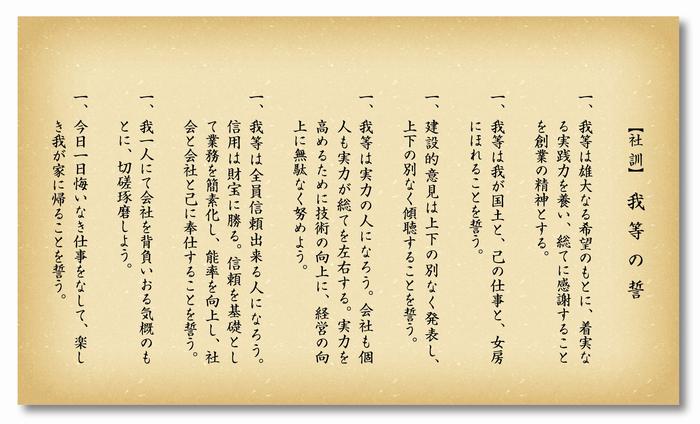 【社訓】 我等の誓
一、我等は雄大なる希望のもとに、着実な
る実践力を養い、総てに感謝すること
を創業の精神とする。
一、我等は我が国土と、己の仕事と、女房
にほれることを誓う。
一、建設的意見は上下の別なく発表し、
上下の別なく傾聴することを誓う。
一、我等は実力の人になろう。会社も個
人も実力が総てを左右する。実力を
高めるために技術の向上に、経営の向
上に無駄なく努めよう。
一、我等は全員信頼出来る人になろう。
信用は財宝に勝る。信頼を基礎とし
て業務を簡素化し、能率を向上し、社
会と会社と己に奉仕することを誓う。
一、我一人にて会社を背負いおる気概のも
とに、切磋琢磨しよう。
一、今日一日悔いなき仕事をなして、楽し
き我が家に帰ることを誓う。